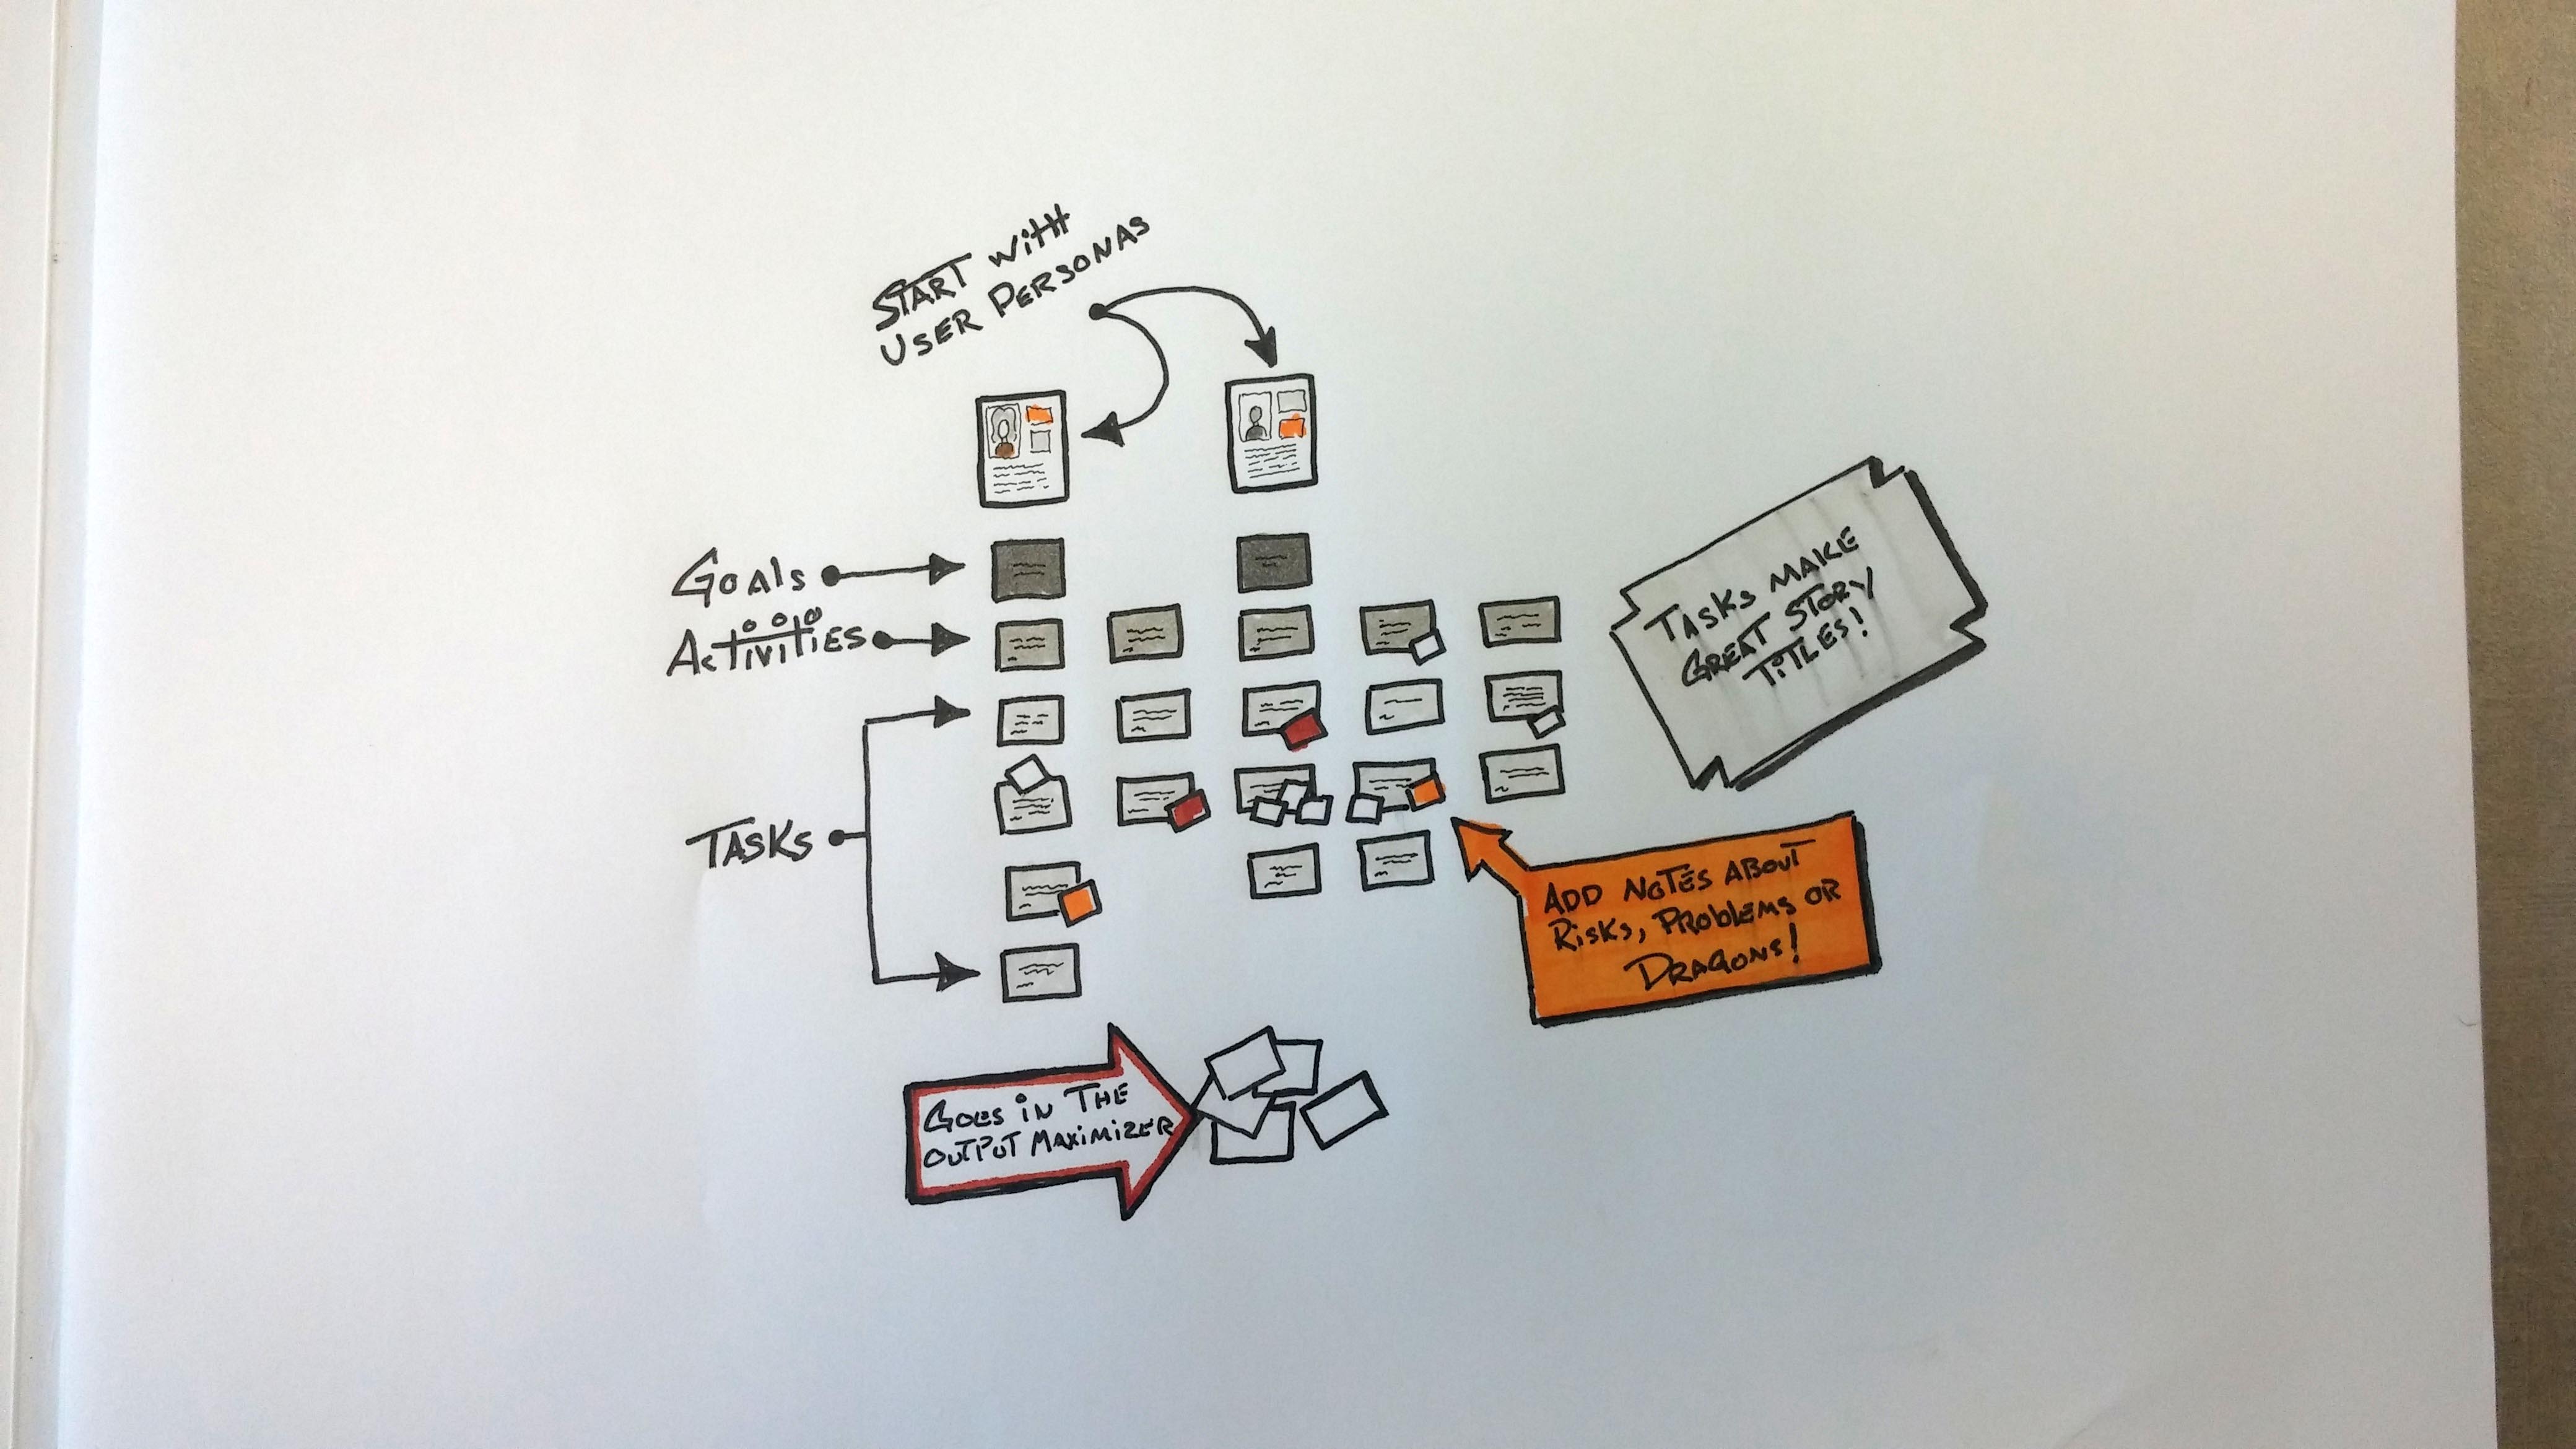 START WITH
USER PERSONAS
GOALS
ACTIVITIES
TASKS MAKE
GREAT STORY
TITLES!
TASKS
ADD NOTES ABOUT
RISKS, PROBLEMS OR
DRAGONS!
GOES IN THE
OUTPUT MAXIMIZER